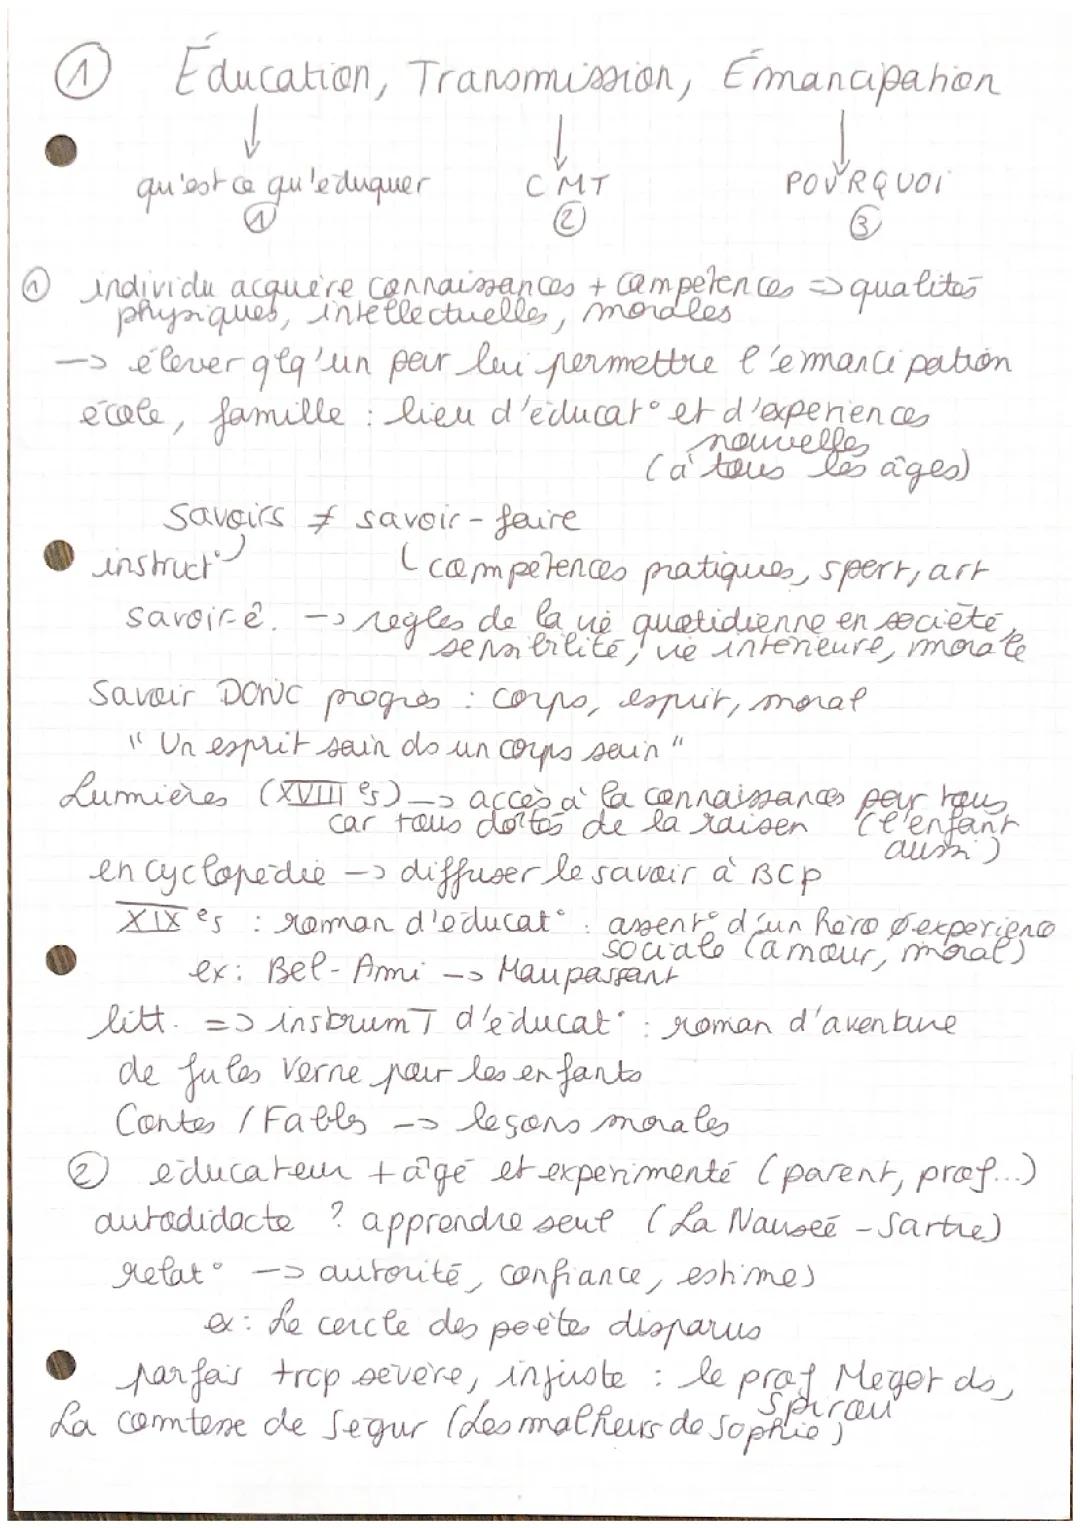 ① Éducation, Transmission, Émancipation
↓ ↓ ↓
qu'est ce qu'eduquer CMT POURQUOI
① ② ③
① individu acquière connaissances + compétences => qualités
physiques, intellectuelles, morales
-> élever qlq'un pour lui permettre l'émancipation
école, famille : lieu d'éducat° et d'experiences
nouvelles
(à tous les âges)
Savoirs ≠ savoir-faire
instruct° compétences pratiques, sport, art
savoir-ê. -> règles de la vie quotidienne en société,
sensibilité, vie intérieure, morale
Savoir DONC progrès : corps, esprit, moral
"Un esprit sain ds un corps sain"
Lumières (XVIII es) -> accès à la connaissances pour tous,
car tous dotés de la raison (l'enfant
aussi)
encyclopédie -> diffuser le savoir à BCP
XIX es : roman d'éducat° : assent° d'un héro ø experience
sociale (amour, moral)
ex: Bel-Ami -> Maupassant
litt. => instrumT d'éducat° : roman d'aventure
de Jules Verne pour les enfants
Contes / Fables -> leçons morales
② éducateur + âgé et experimenté (parent, prof...)
autodidacte ? apprendre seul (La Nausée - Sartre)
relat° -> autorité, confiance, estimes
ex: Le cercle des poètes disparus
parfois trop sévère, injuste : le prof Megot ds,
Spirou
La comtesse de Segur (Les malheurs de Sophie)